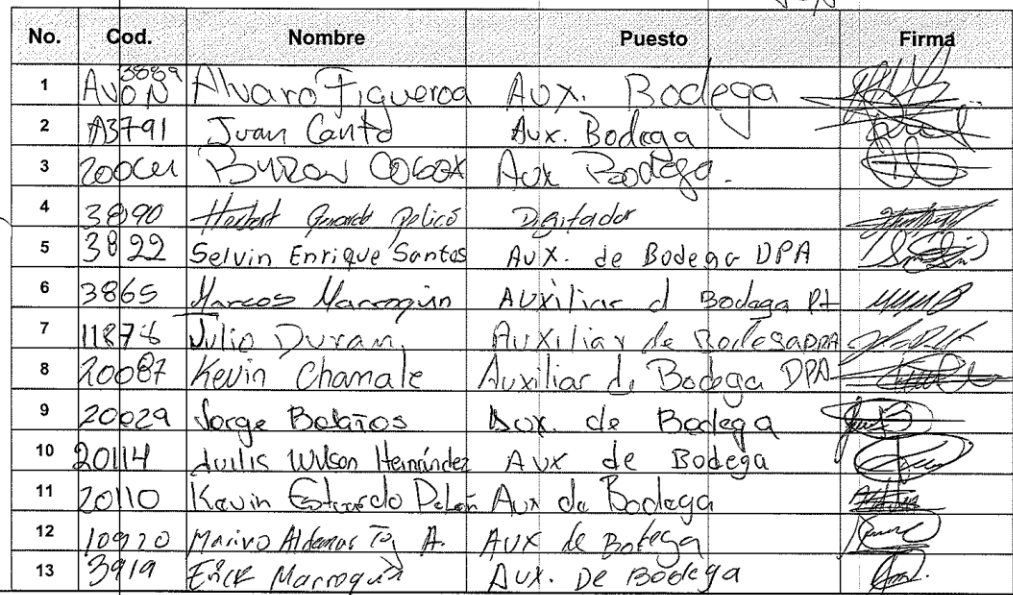 No. Cod. Nombre Puesto Firma
1 AVON 3889 Alvaro Figueroa Aux. Bodega
2 A3791 Juan Canto Aux. Bodega
3 Byron Aux Bodega.
4 3890 Herbert Gerardo Pelicó Digitador
5 3822 Selvin Enrique Santos Aux. de Bodega DPA
6 3865 Marcos Marroquin Auxiliar d Bodega Pt
7 Julio Duran Auxiliar de Bodega DPA
8 20087 Kevin Chamale Auxiliar de Bodega DPA
9 20029 Jorge Bolaños Aux. de Bodega
10 20114 Wilson Hernández Aux de Bodega
11 20110 Kevin Estuardo Aux de Bodega
12 10920 A. Aux de Bodega
13 3919 Erick Marroquin Aux. De Bodega